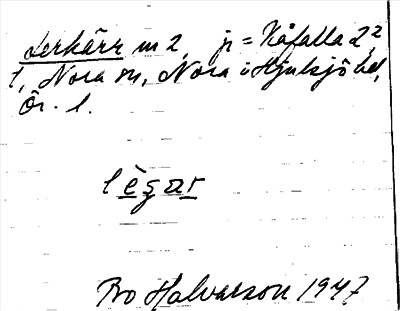 Lerkärr m 2, jr = Kåfalla 2²
1, Nora sn, Nora o Hjulsjö bd,
Ör. l.
lègar
Bo Halvarson 1947